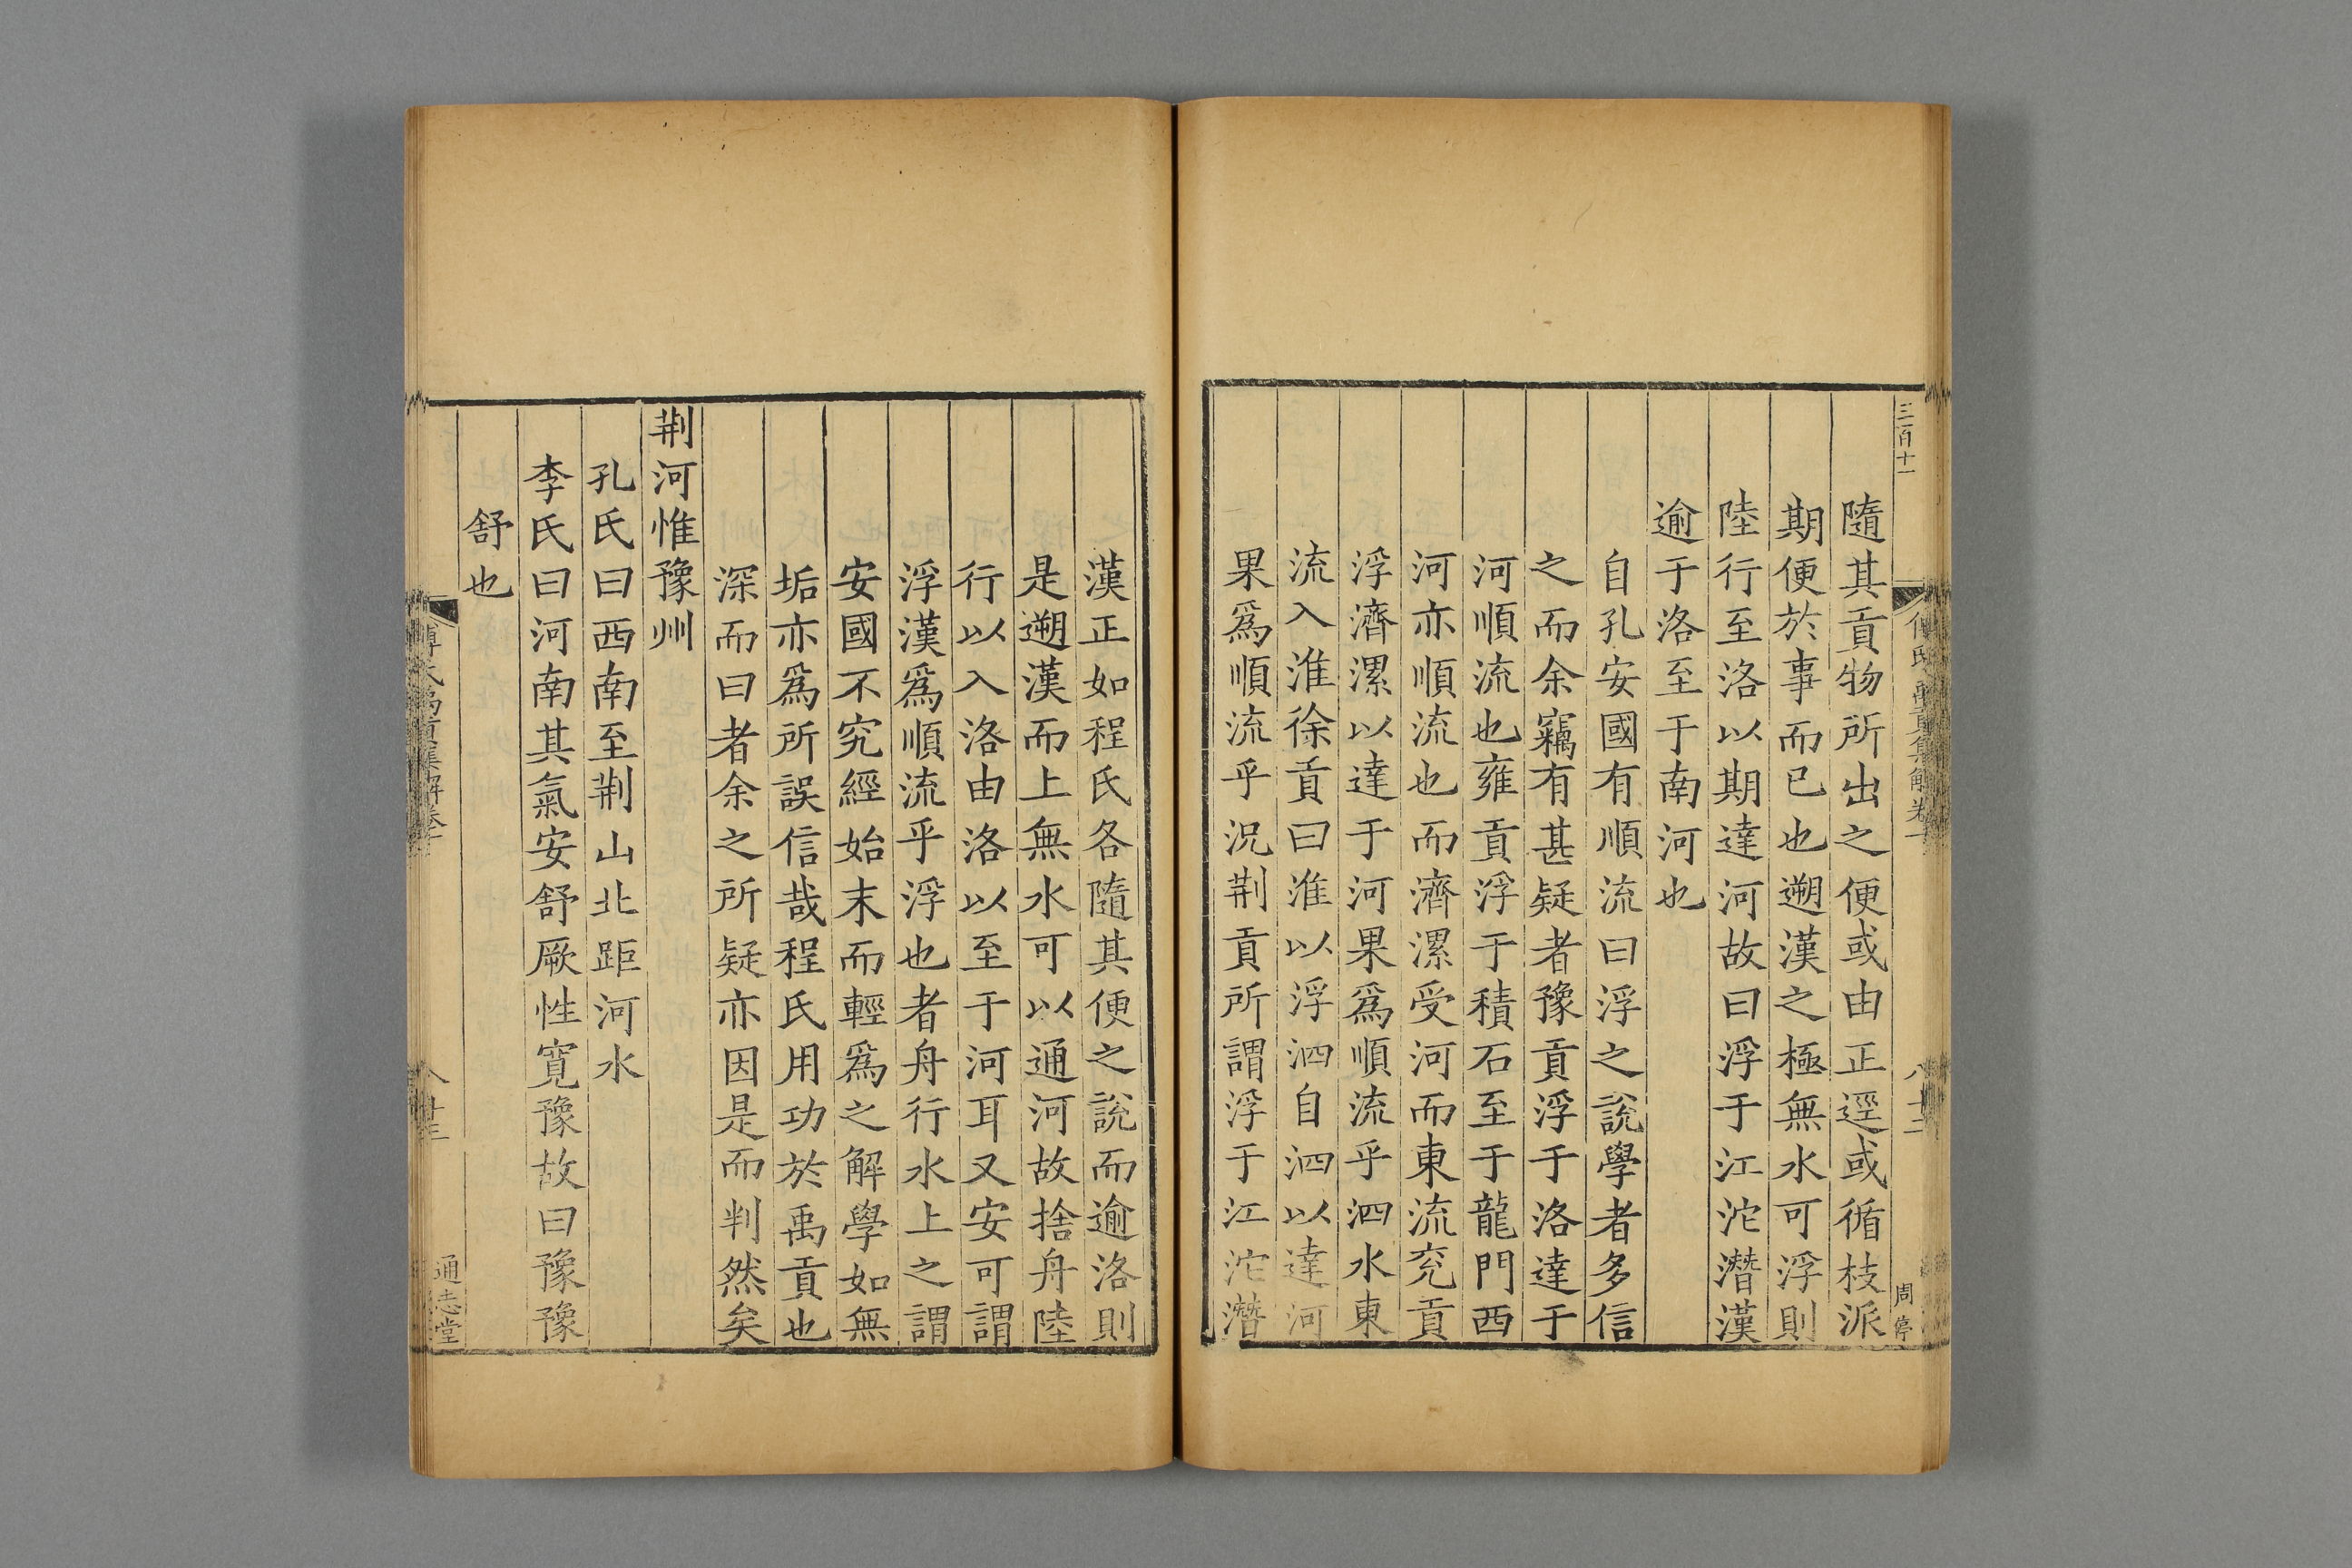 三百十一
周停
隨其貢物所出之便或由正逕或循枝派
期便於事而已也遡漢之極無水可浮則
陸行至洛以期達河故曰浮于江沱潛漢
逾于洛至于南河也
自孔安國有順流曰浮之說學者多信
之而余竊有甚疑者豫貢浮于洛達于
河順流也雍貢浮于積石至于龍門西
河亦順流也而濟漯受河而東流兖貢
浮濟漯以達于河果爲順流乎泗水東
流入淮徐貢曰淮以浮泗自泗以達河
果爲順流乎況荆貢所謂浮于江沱潛
漢正如程氏各隨其便之說而逾洛則
是遡漢而上無水可以通河故捨舟陸
行以入洛由洛以至于河耳又安可謂
浮漢爲順流乎浮也者舟行水上之謂
安國不究經始末而輕爲之解學如無
垢亦爲所誤信哉程氏用功於禹貢也
深而曰者余之所疑亦因是而判然矣
荆河惟豫州
孔氏曰西南至荆山北距河水
李氏曰河南其氣安舒厥性寛豫故曰豫豫
舒也
通志堂